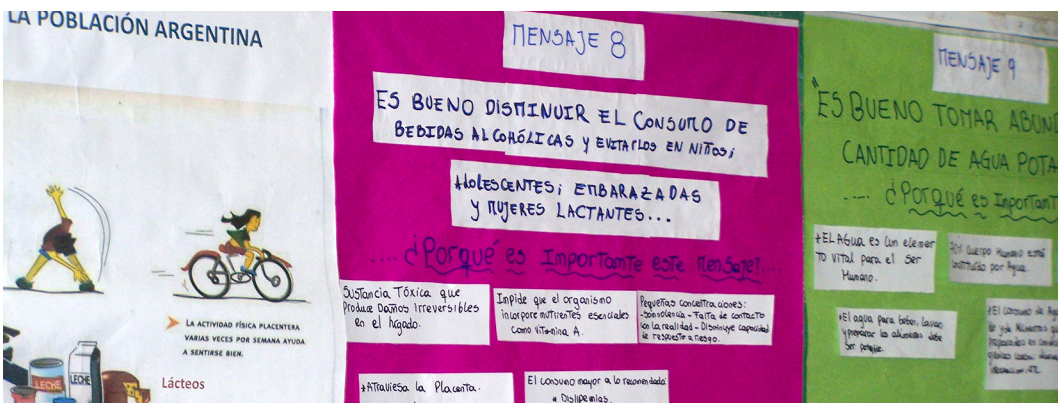 LA POBLACIÓN ARGENTINA
LA ACTIVIDAD FÍSICA PLACENTERA
VARIAS VECES POR SEMANA AYUDA
A SENTIRSE BIEN.
LECHE
LECHE
Lácteos
MENSAJE 8
ES BUENO DISMINUIR EL CONSUMO DE
BEBIDAS ALCOHÓLICAS Y EVITARLOS EN NIÑOS;
ADOLESCENTES; EMBARAZADAS
Y MUJERES LACTANTES...
.... ¿Porqué es Importante este Mensaje?...
Sustancia Tóxica que
Produce Daños Irreversibles
en el Hígado.
Impide que el organismo
incorpore nutrientes esenciales
como vitamina A.
Pequeñas concentraciones:
-Somnolencia - Falta de contacto
con la realidad - Disminuye capacidad
de respuesta a riesgo.
+Atraviesa la Placenta.
El consumo mayor a lo recomendado
* Dislipemias.
MENSAJE 9
"ES BUENO TOMAR ABUN
CANTIDAD DE AGUA POTA
.... ¿Porqué es Important
+EL AGUA es un elemen
to vital para el ser
Humano.
Cuerpo Humano está
por Agua.
*El agua para beber, lavar
y preparar los alimentos debe
ser potable.